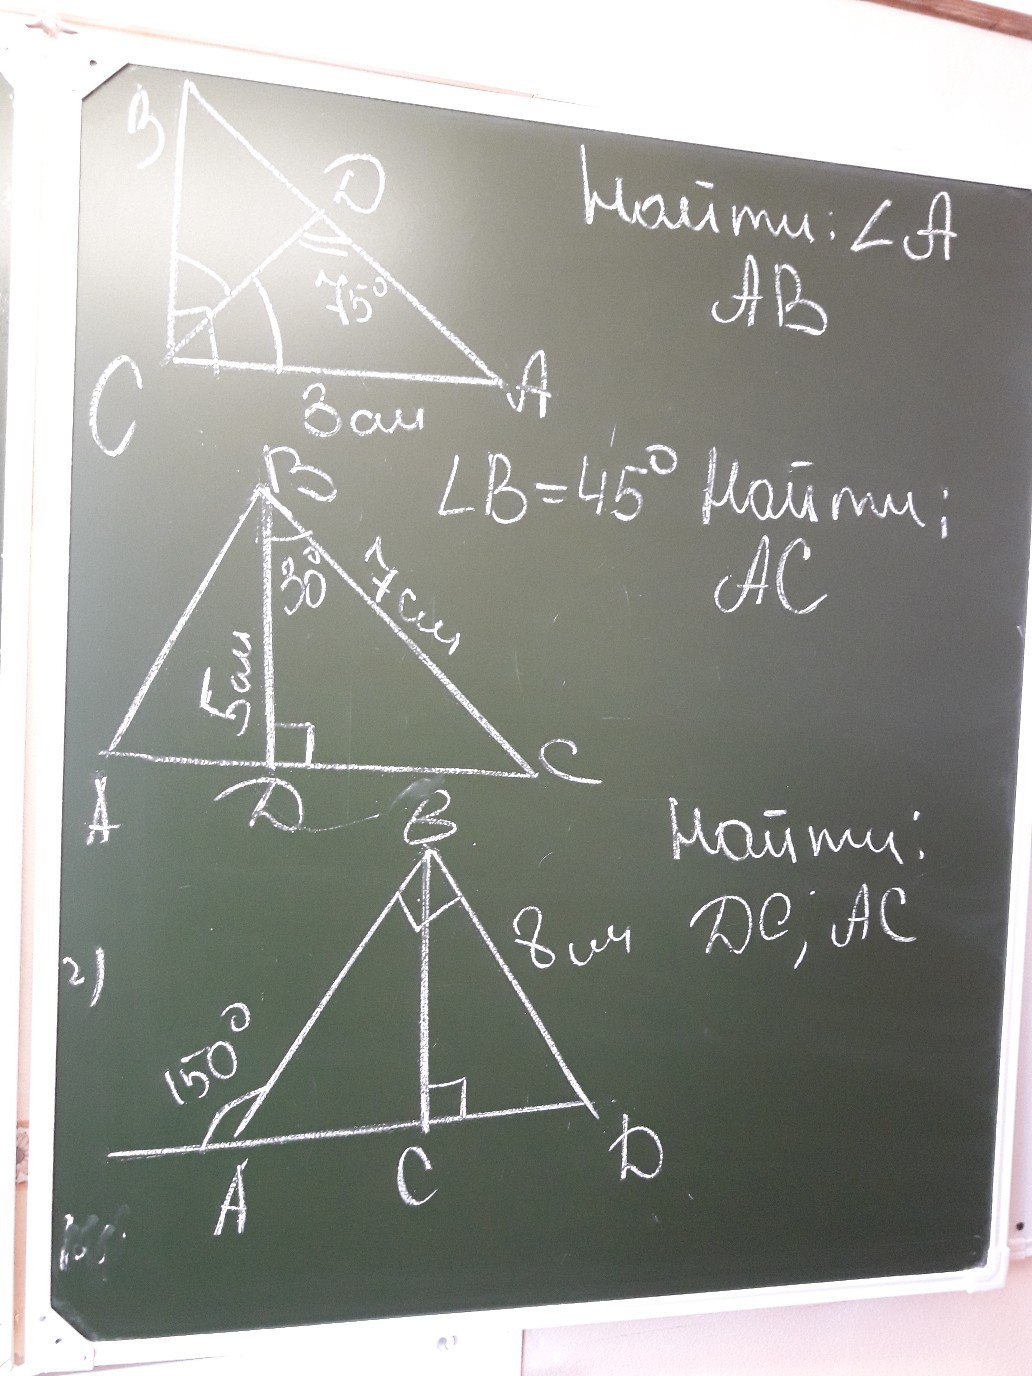 B
D
75°
C
3 см
A
Найти: ∠A
AB
B
30°
7 см
5 см
A
D
C
∠B=45° Найти:
AC
2)
B
8 см
150°
A
C
D
Найти:
DC; AC